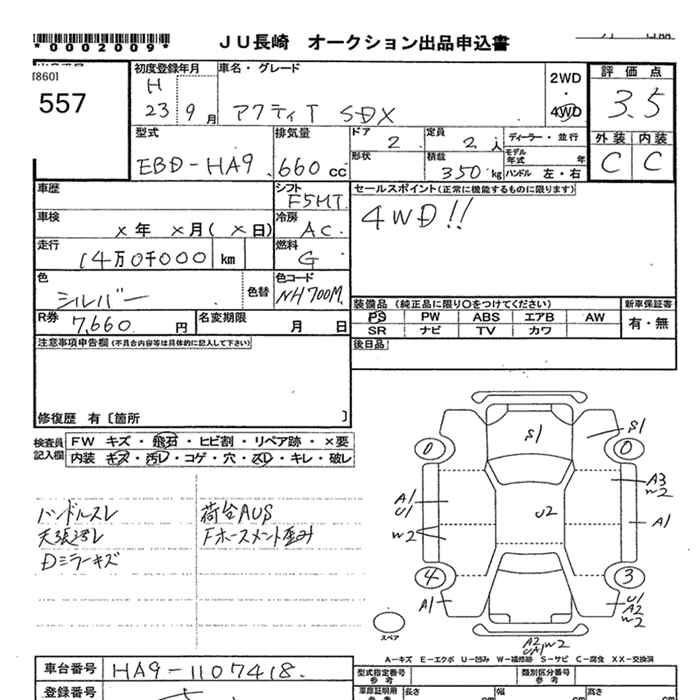 *0002009*
JU長崎 オークション出品申込書
[860]
557
初度登録年月
H
23 9月
車名・グレード
アクティT SDX
2WD
・
4WD
評価点
3.5
型式
EBD-HA9
排気量
660cc
ドア
2
定員
2人
ディーラー・並行
外装 内装
C C
形状
積載
350kg
モデル年式 年
ハンドル 左・右
車歴
シフト
F5MT
セールスポイント(正常に機能するものに限ります)
4WD!!
車検
×年 ×月(×日)
冷房
AC
走行
14万0千000 km
燃料
G
色
シルバー
色替
色コード
NH700M
装備品 (純正品に限り○をつけてください)
新車保証書
R券
7,660円
名変期限
月 日
PS PW ABS エアB AW
有・無
SR ナビ TV カワ
注意事項申告欄(不具合内容等は具体的に記入して下さい)
後日品
修復歴 有〔箇所 〕
検査員記入欄
FW キズ・飛石・ヒビ割・リペア跡・×要
内装 キズ・汚レ・コゲ・穴・スレ・キレ・破レ
ハンドルスレ
天張汚レ
Dミラーキズ
荷台AUS
Fホースメント歪み
S1
S1
0
0
A1
U1
W2
U2
A3
W2
A1
4
3
A1
U1
A2
W2
A2
W2
UA1
スペア
A-キズ E-エクボ U-凹み W-補修跡 S-サビ C-腐食 XX-交換済
車台番号
HA9-1107418
型式指定番号
参考
類別区分番号
参考
登録番号
車庫証明用
参考
長さ
幅
高さ